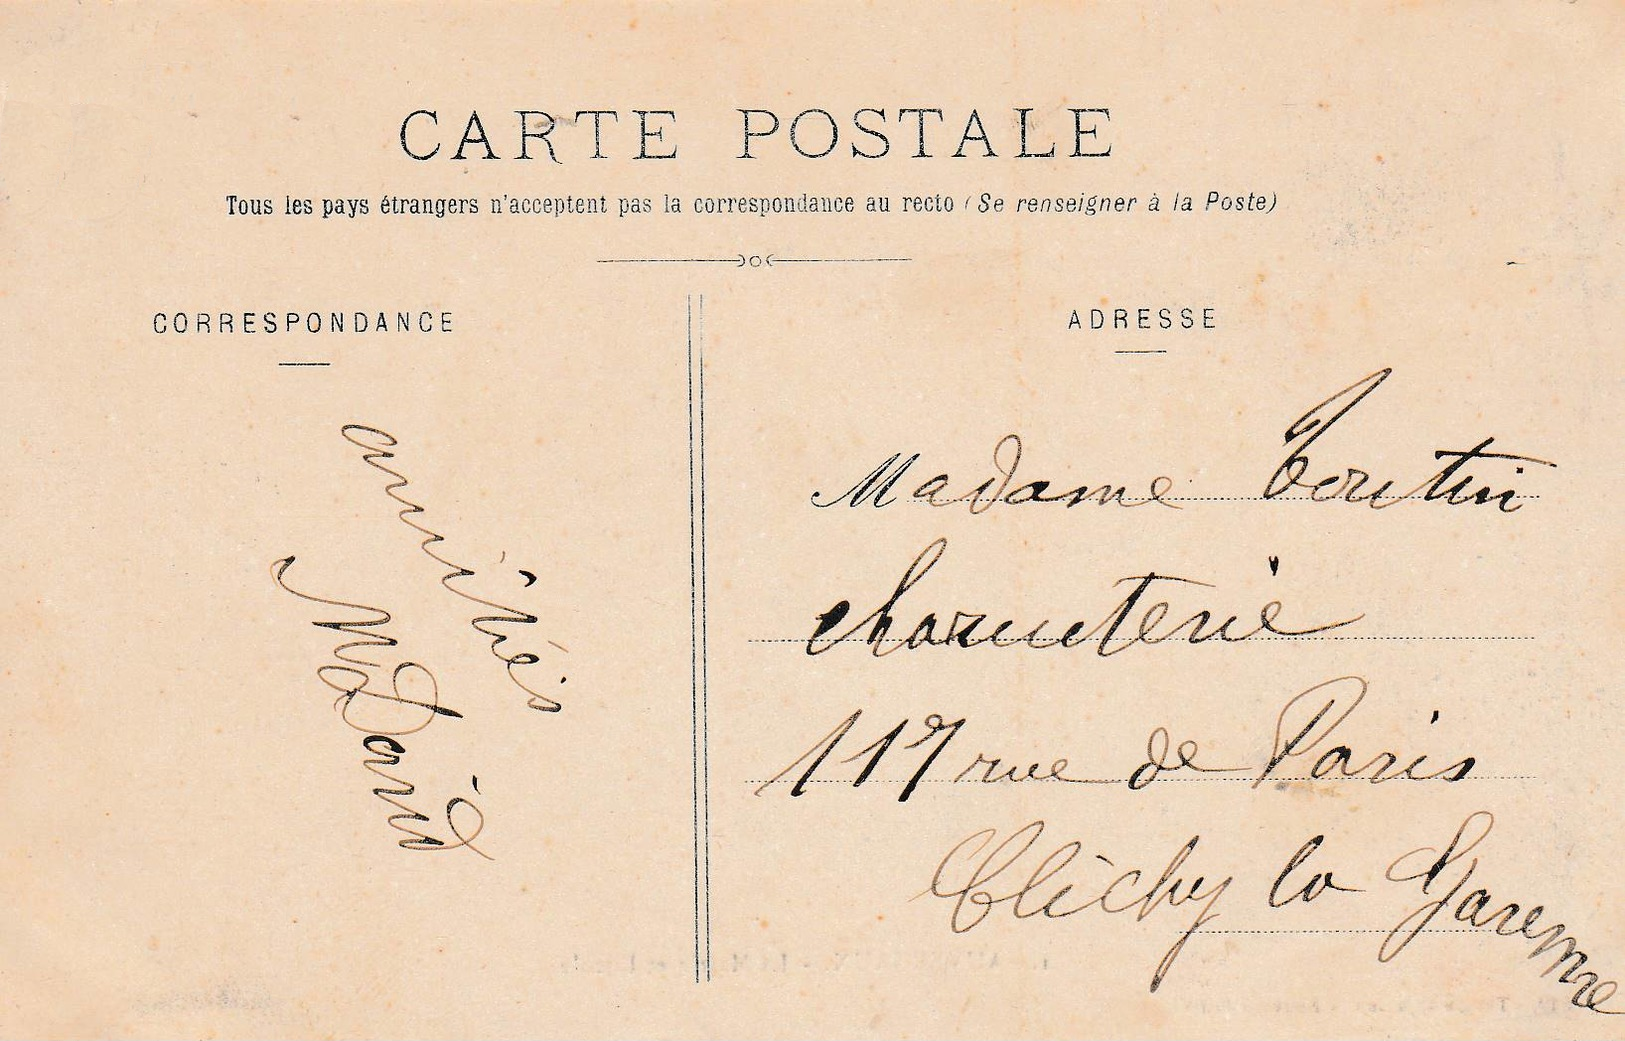 CARTE POSTALE
Tous les pays étrangers n'acceptent pas la correspondance au recto (Se renseigner à la Poste)
CORRESPONDANCE
amitiés
David
ADRESSE
Madame Toutin
charcuterie
117 rue de Paris
Clichy la Garenne